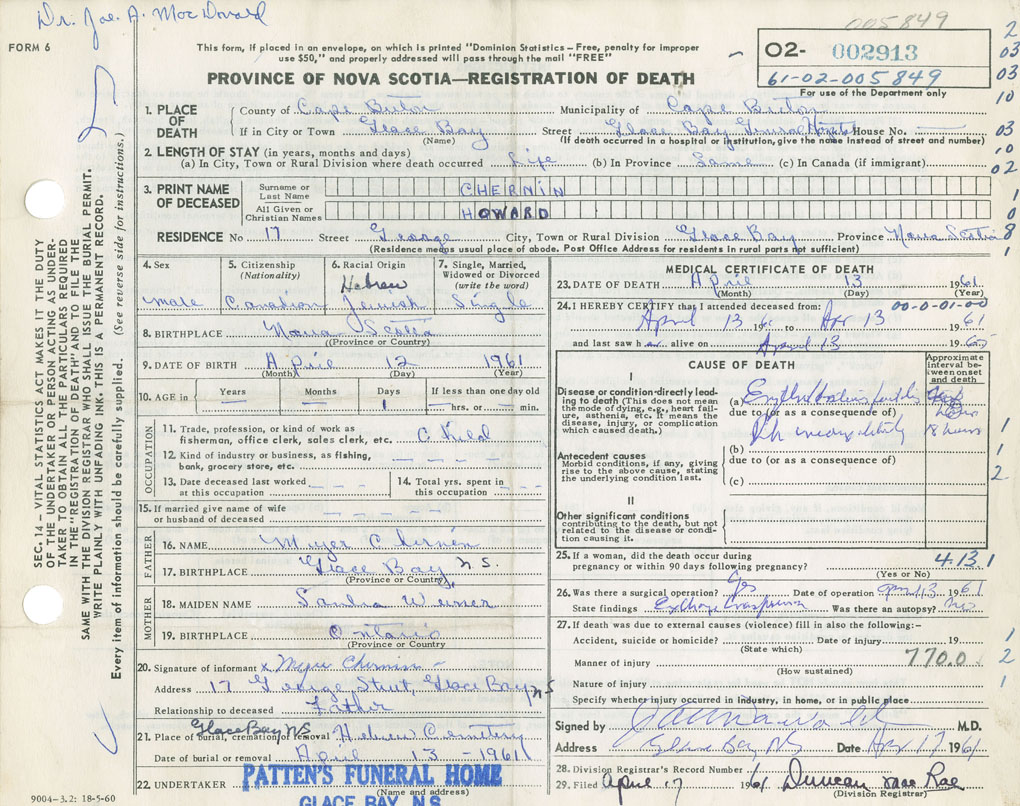 Dr. Joe A. MacDonald
005849
FORM 6
This form, if placed in an envelope, on which is printed "Dominion Statistics — Free, penalty for improper
use $50," and properly addressed will pass through the mail "FREE"
O2- 002913
61-02-005849
For use of the Department only
PROVINCE OF NOVA SCOTIA—REGISTRATION OF DEATH
1. PLACE OF DEATH
County of Cape Breton Municipality of Cape Breton
If in City or Town Glace Bay Street Glace Bay General Hospital House No.
(Name) (If death occurred in a hospital or institution, give the name instead of street and number)
2. LENGTH OF STAY (in years, months and days)
(a) In City, Town or Rural Division where death occurred Life (b) In Province Same (c) In Canada (if immigrant)
3. PRINT NAME OF DECEASED
Surname or Last Name CHERNIN
All Given or Christian Names HOWARD
RESIDENCE No 17 Street George City, Town or Rural Division Glace Bay Province Nova Scotia
(Residence means usual place of abode. Post Office Address for residents in rural parts not sufficient)
4. Sex male
5. Citizenship (Nationality) Canadian
6. Racial Origin Hebrew Jewish
7. Single, Married, Widowed or Divorced (write the word) Single
8. BIRTHPLACE Nova Scotia
((Province or Country)
9. DATE OF BIRTH April 12 1961
(Month) (Day) (Year)
10. AGE in Years — Months — Days 1 If less than one day old — hrs. or — min.
OCCUPATION
11. Trade, profession, or kind of work as fisherman, office clerk, sales clerk, etc. Child
12. Kind of industry or business, as fishing, bank, grocery store, etc.
13. Date deceased last worked at this occupation
14. Total yrs. spent in this occupation
15. If married give name of wife or husband of deceased
FATHER
16. NAME Myer Chernin
17. BIRTHPLACE Glace Bay, N.S.
(Province or Country)
MOTHER
18. MAIDEN NAME Sandra Weiner
19. BIRTHPLACE Ontario
(Province or Country
20. Signature of informant x Myer Chernin
Address 17 George Street, Glace Bay NS
Relationship to deceased Father
21. Place of burial, cremation or removal Glace Bay NS Hebrew Cemetery
Date of burial or removal April 13 - 1961
22. UNDERTAKER PATTEN'S FUNERAL HOME
(Name and address)
GLACE BAY, N.S.
9004-3.2: 18-5-60
MEDICAL CERTIFICATE OF DEATH
23. DATE OF DEATH April 13 1961
(Month) (Day) (Year)
24. I HEREBY CERTIFY that I attended deceased from: 00-0-01-00
April 13 61 to Apr 13 1961
and last saw h alive on April 13 19
CAUSE OF DEATH
Approximate interval between onset and death
I
Disease or condition directly leading to death (This does not mean the mode of dying, e.g., heart failure, asthenia, etc. It means the disease, injury, or complication which caused death.)
(a)
due to (or as a consequence of)
Rh 18 hours
Antecedent causes
Morbid conditions, if any, giving rise to the above cause, stating the underlying condition last.
(b)
due to (or as a consequence of)
(c)
II
Other significant conditions
contributing to the death, but not related to the disease or condition causing it.
25. If a woman, did the death occur during pregnancy or within 90 days following pregnancy? 4.13
(Yes or No)
26. Was there a surgical operation? Yes Date of operation 13 1961
State findings Was there an autopsy? no
27. If death was due to external causes (violence) fill in also the following:-
Accident, suicide or homicide? Date of injury 19
(State which)
Manner of injury 770.0
(How sustained)
Nature of injury
Specify whether injury occurred in industry, in home, or in public place
Signed by M.D.
Address Glace Bay NS Date Apr. 17 1961
28. Division Registrar's Record Number
29. Filed April 17 1961 Duncan MacRae
(Division Registrar)
SEC. 14 – VITAL STATISTICS ACT MAKES IT THE DUTY
OF THE UNDERTAKER OR PERSON ACTING AS UNDER-
TAKER TO OBTAIN ALL THE PARTICULARS REQUIRED
IN THE "REGISTRATION OF DEATH" AND TO FILE THE
SAME WITH THE DIVISION REGISTRAR WHO SHALL ISSUE THE BURIAL PERMIT.
WRITE PLAINLY WITH UNFADING INK. THIS IS A PERMANENT RECORD.
Every item of information should be carefully supplied. (See reverse side for instructions.)
2
03
03
10
03
10
02
1
0
8
1
1
1
2
1
1
2
1